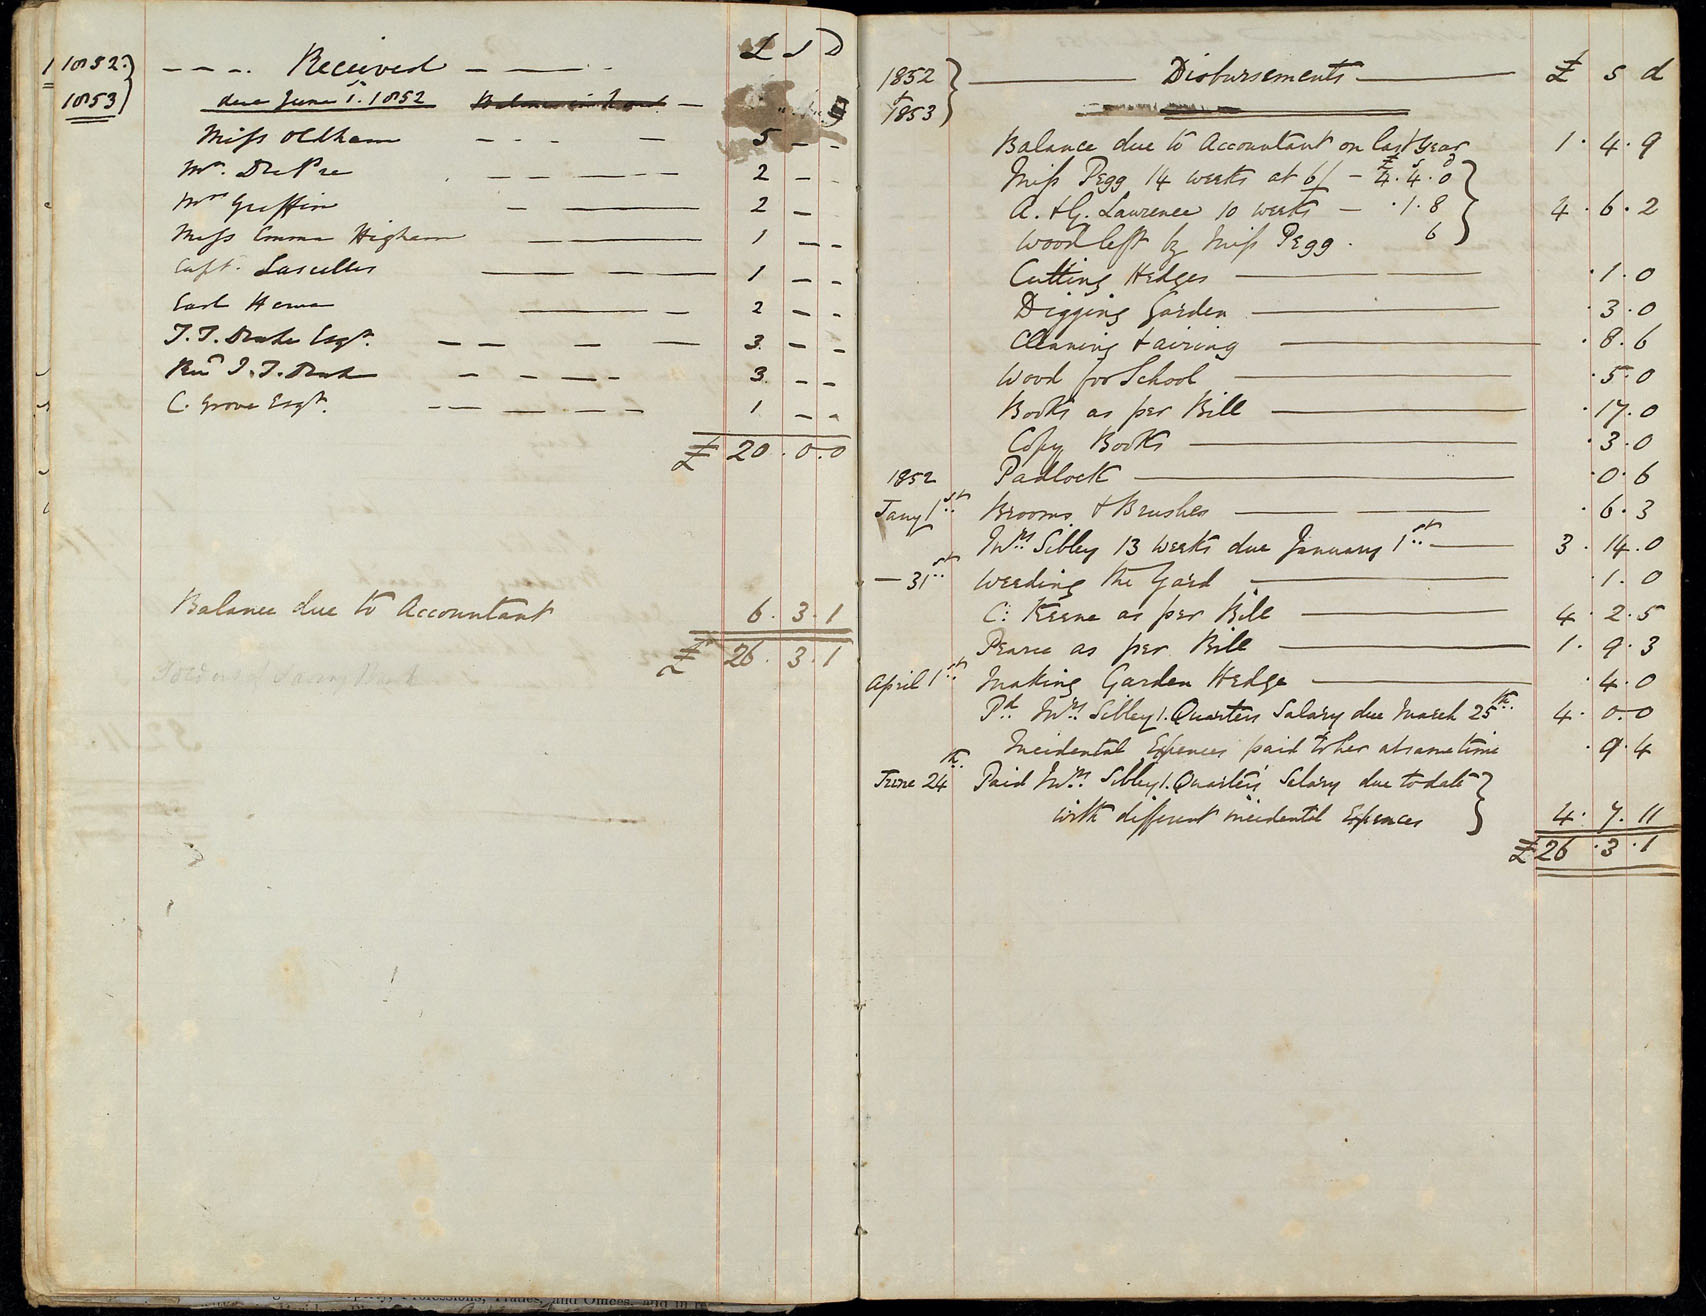 1852
1853
Received
£ S D
due June 1st. 1852 Balance in hand
Miss Oldham 5 - -
Mr. DuPre 2 - -
Mrs Griffin 2 -
Miss Emma Higham 1 - -
Capt. Lascelles 1 - -
Earl Howe 2 - -
T. T. Drake Esqr. 3 - -
Revd J. T. Drake 3 - -
C. Grove Esqr. 1 - -
£ 20 . 0.0
Balance due to Accountant 6 . 3 . 1
£ 26 . 3 . 1
1852
1853
Disbursements
£ s d
Balance due to Accountant on last Year 1 . 4 . 9
£ s d
Miss Pegg 14 weeks at 6/ - 4 . 4 . 0
A. & G. Lawrence 10 weeks - . 1 . 8 4 . 6 . 2
Wood left by Miss Pegg . 6
Cutting Hedges . 1 . 0
Digging Garden . 3 . 0
Cleaning & airing . 8 . 6
Wood for School . 5 . 0
Books as per Bill . 17 . 0
Copy Books . 3 . 0
1852 Padlock . 0 . 6
Jany 1st Brooms & Brushes . 6 . 3
Mrs Sibley 13 weeks due January 1st 3 . 14 . 0
- 31st Weeding the Yard . 1 . 0
C. Keene as per Bill 4 . 2 . 5
Pearce as per Bill 1 . 9 . 3
April 1st Making Garden Hedge . 4 . 0
Pd Mrs Sibley 1. Quarters Salary due March 25th. 4 . 0.0
Incidental Expences paid to her at same time . 9 . 4
June 24th. Paid Mrs Sibley 1. Quarters Salary due to date
with different incidental Expences 4 . 7 . 11
£ 26 . 3 . 1